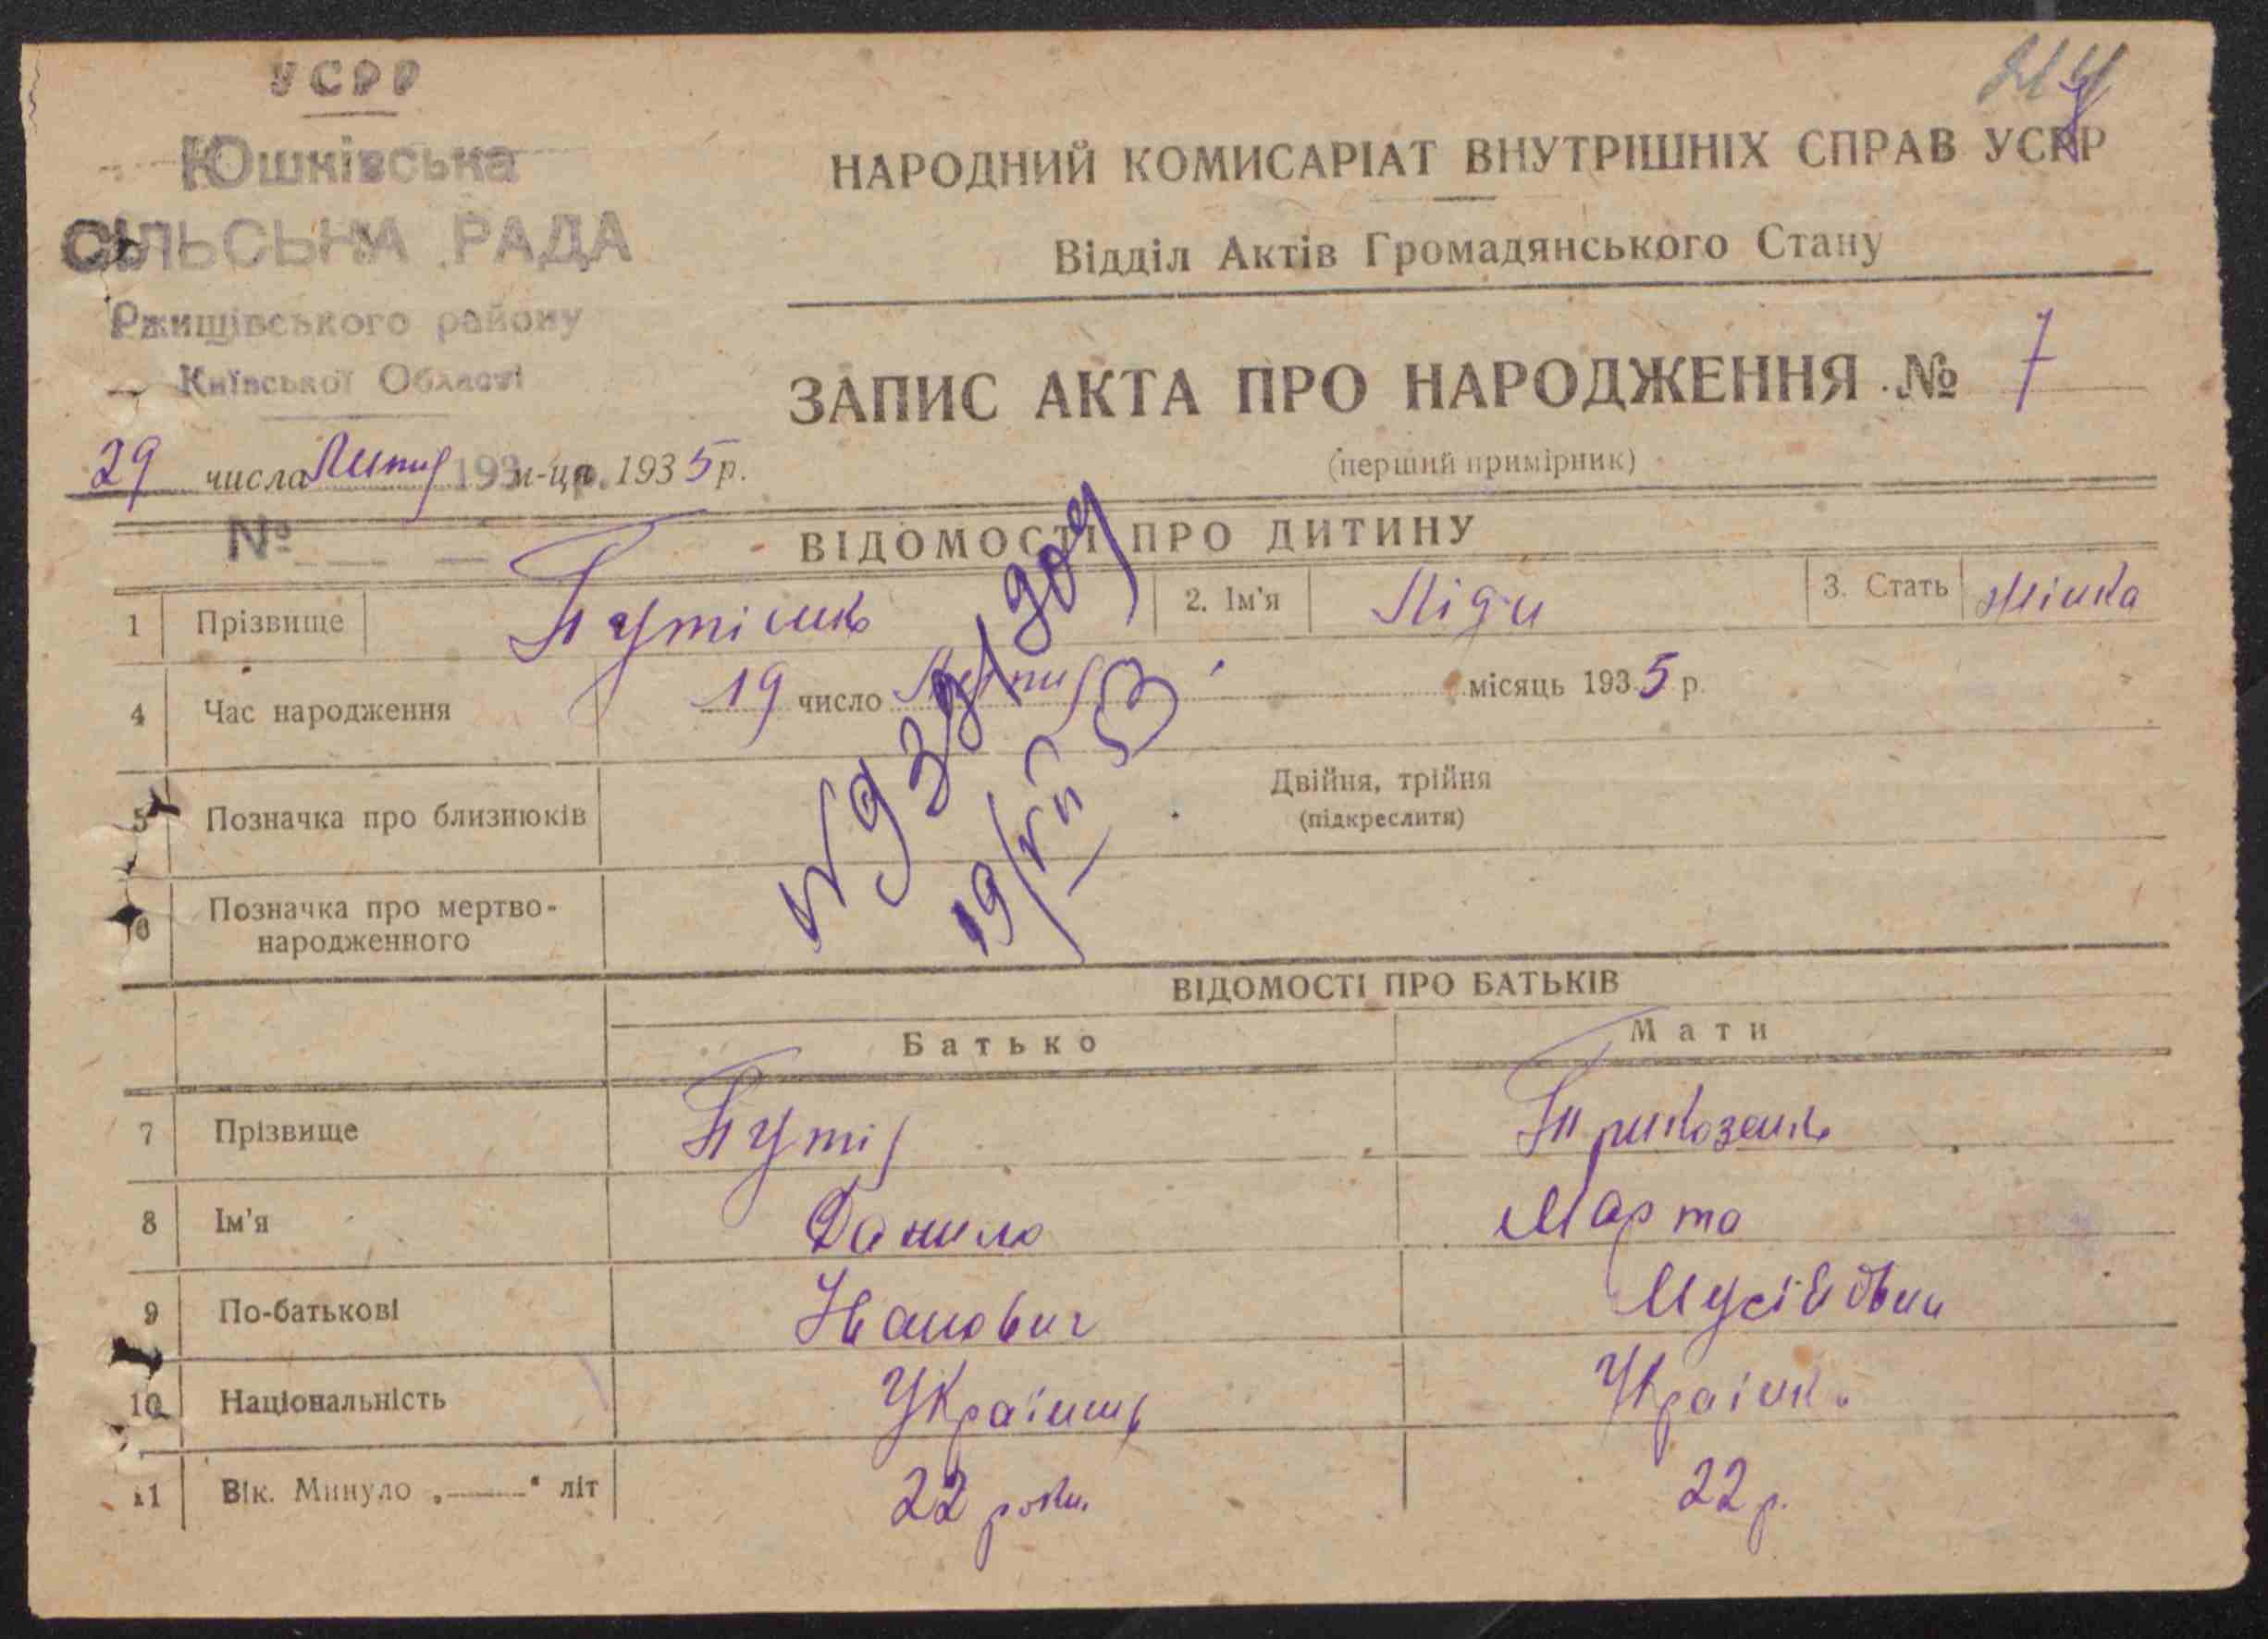 УСРР
Юшківська
СІЛЬСЬКА РАДА
Ржищівського району
Київської Області
29 числа Липня 193 м-ця р. 1935 р.
№
НАРОДНИЙ КОМИСАРІАТ ВНУТРІШНІХ СПРАВ УСРР
Відділ Актів Громадянського Стану
ЗАПИС АКТА ПРО НАРОДЖЕННЯ № 7
(перший примірник)
ВІДОМОСТІ ПРО ДИТИНУ
1 Прізвище 2. Ім'я Ліда 3. Стать жінка
4 Час народження 19 число місяць 1935 р.
5 Позначка про близнюків Двійня, трійня
(підкреслити)
6 Позначка про мертво-
народженного
ВІДОМОСТІ ПРО БАТЬКІВ
Батько Мати
7 Прізвище
8 Ім'я Данило Марта
9 По-батькові Іванович
10 Національність Українець
11 Вік. Минуло „——“ літ 22 роки. 22 р.